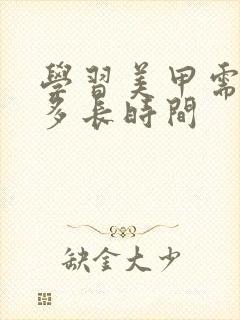 學習美甲需
多長時間
缺金大少